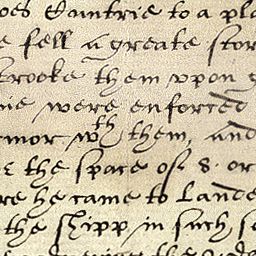 oes Countrie to a pla
e fell a greate stor
strooke them vpon g
ne were enforced
mor wth them, and
e the space of 8. or
re he came to Lande
the shipp in such s